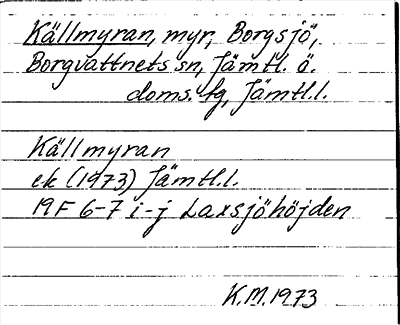 Källmyran, myr, Borgsjö,
Borgvattnets sn, Jämtl. ö.
doms. fg, Jämtl.l.
Källmyran
ek (1973) Jämtl.l.
19F 6-7 i-j Laxsjöhöjden
K.M. 1973